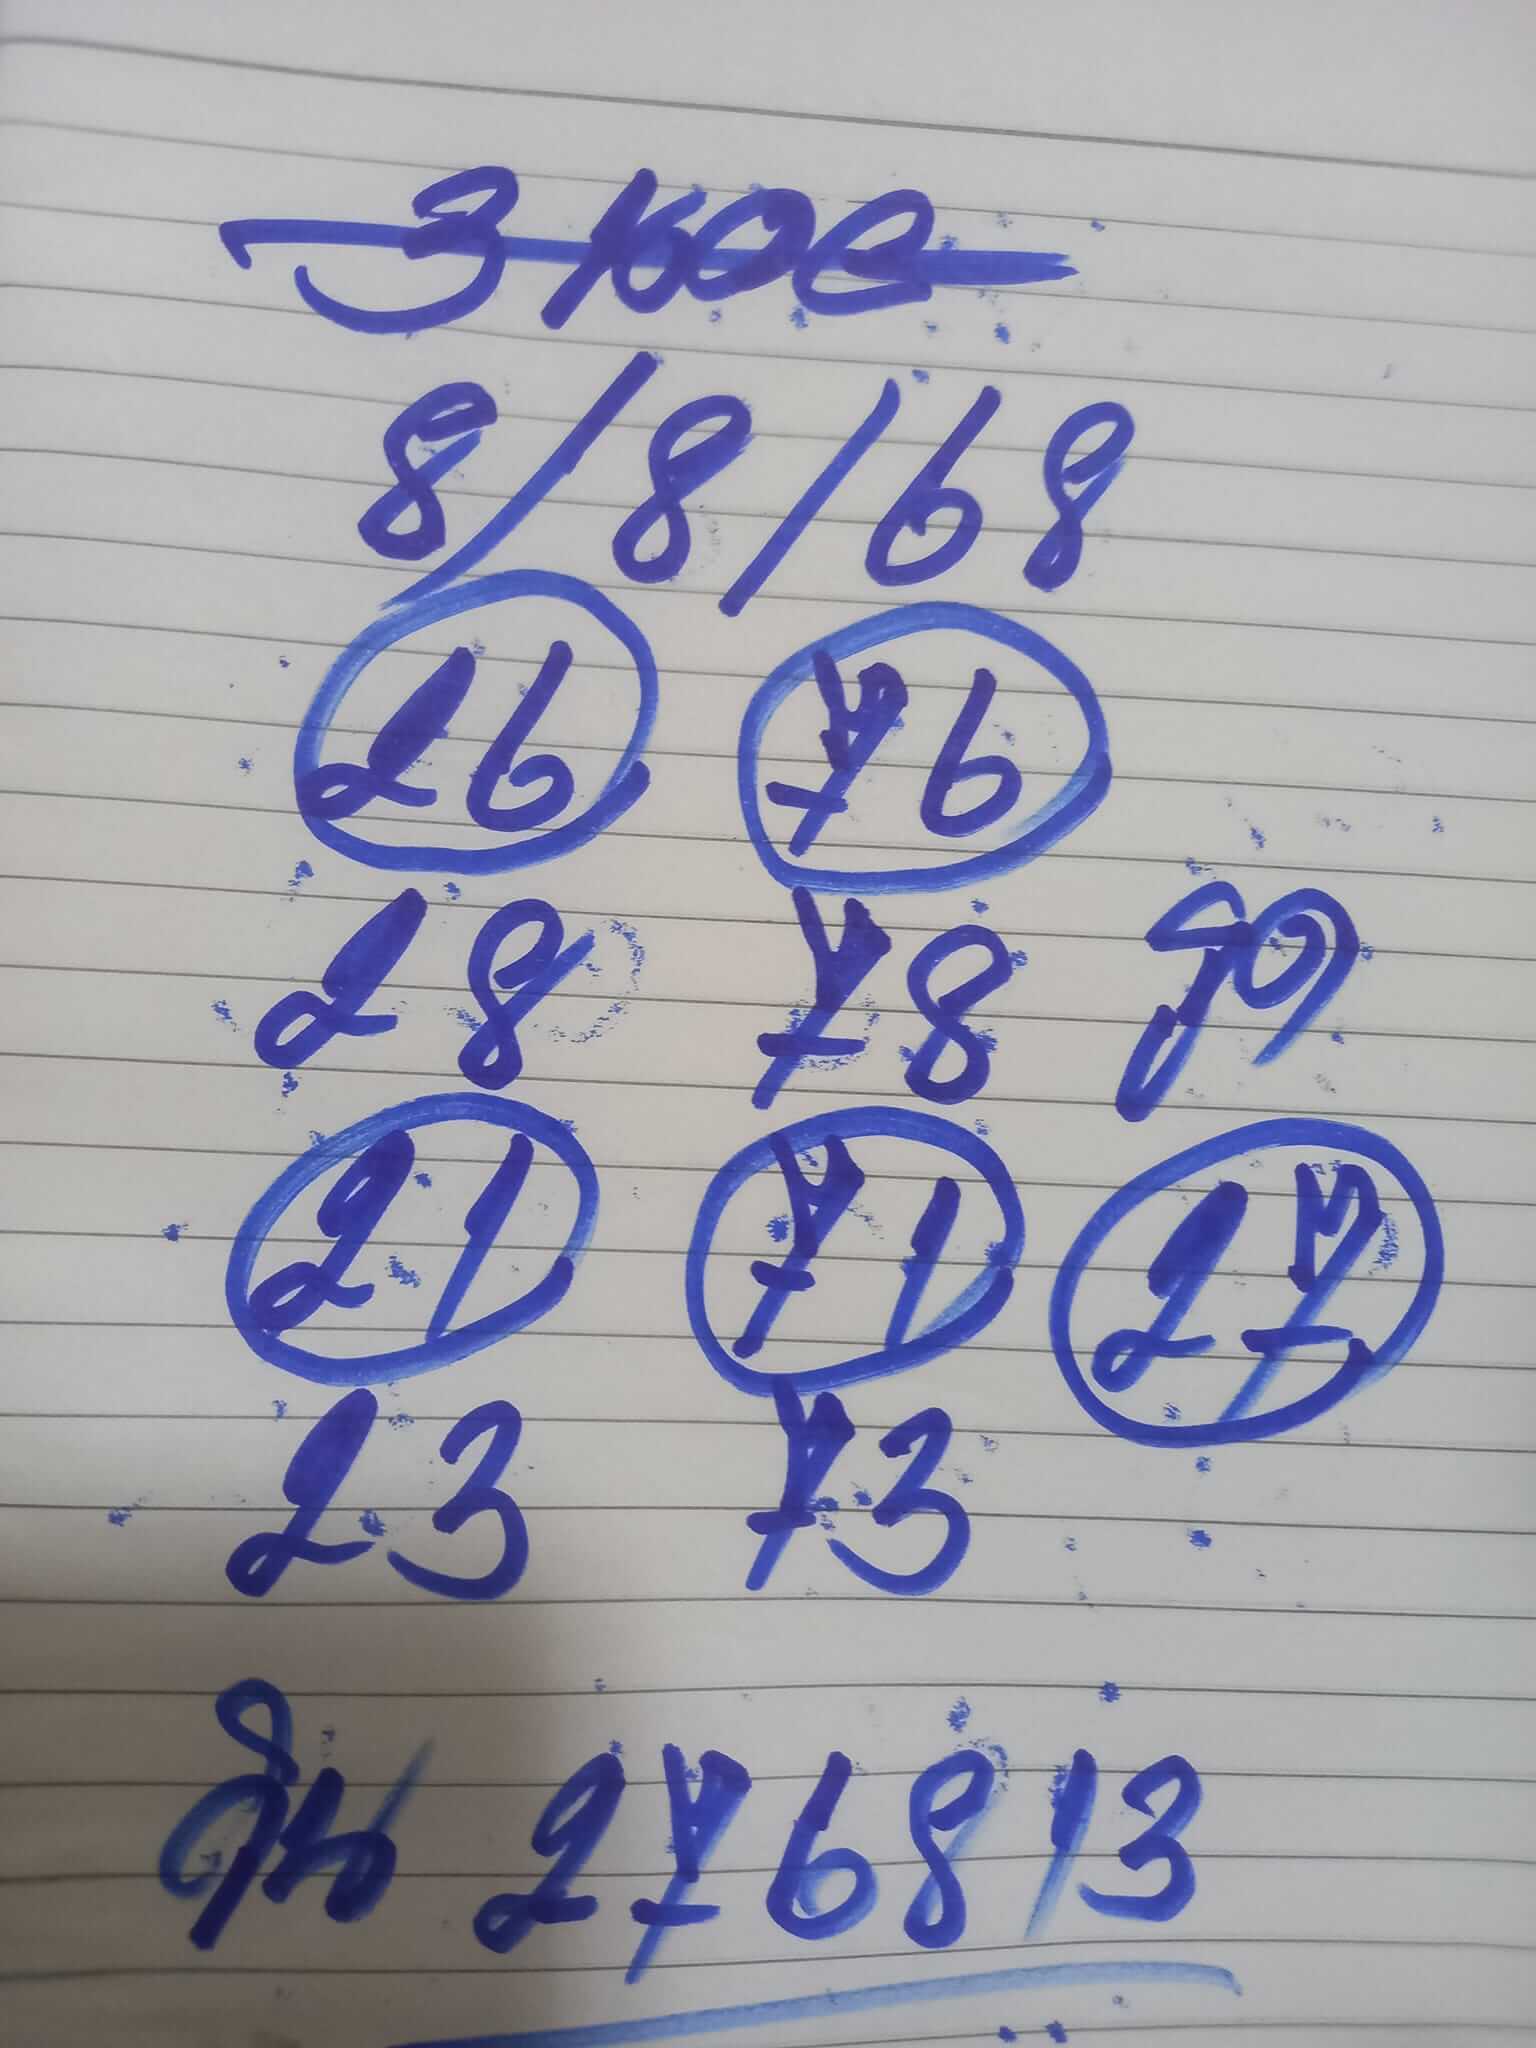 8/8/68
26 76
28 78
21 71 27
23 73
วิน 276813